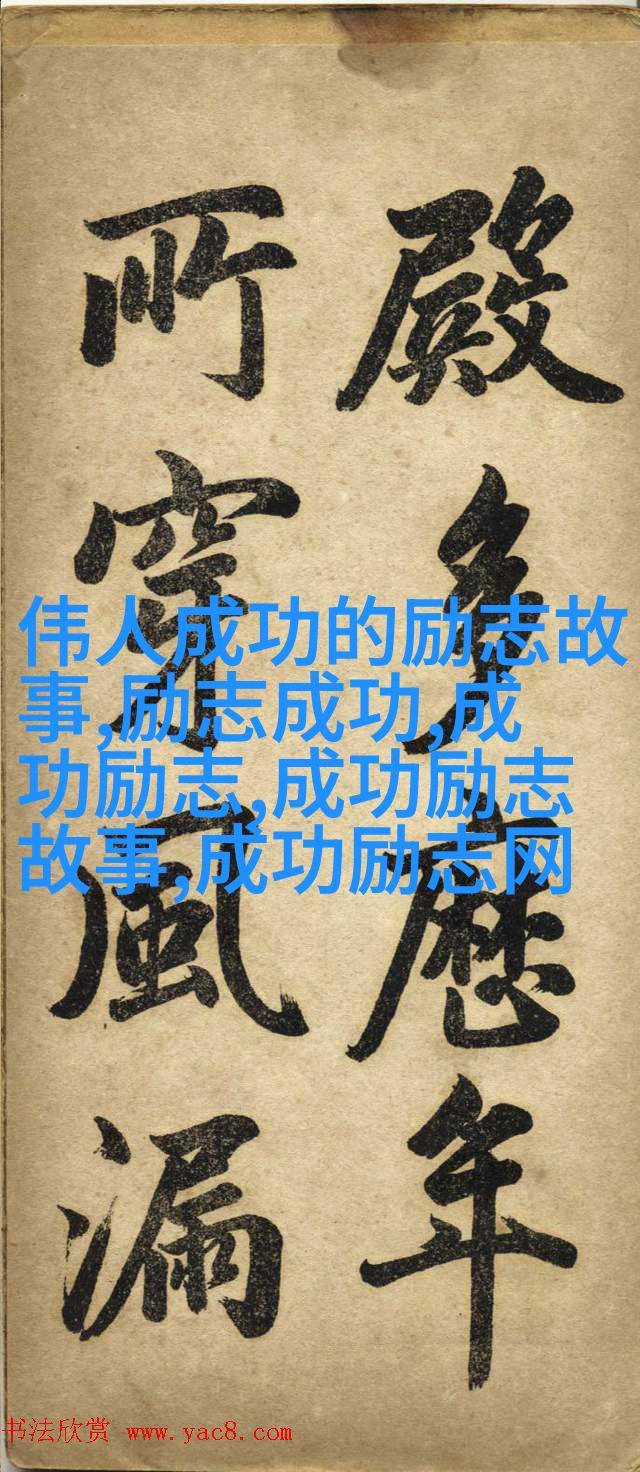 殿多歷年
所穿風漏
伟人成功的励志故
事,励志成功,成
功励志,成功励志
故事,成功励志网
书法欣赏 www.yac8.com